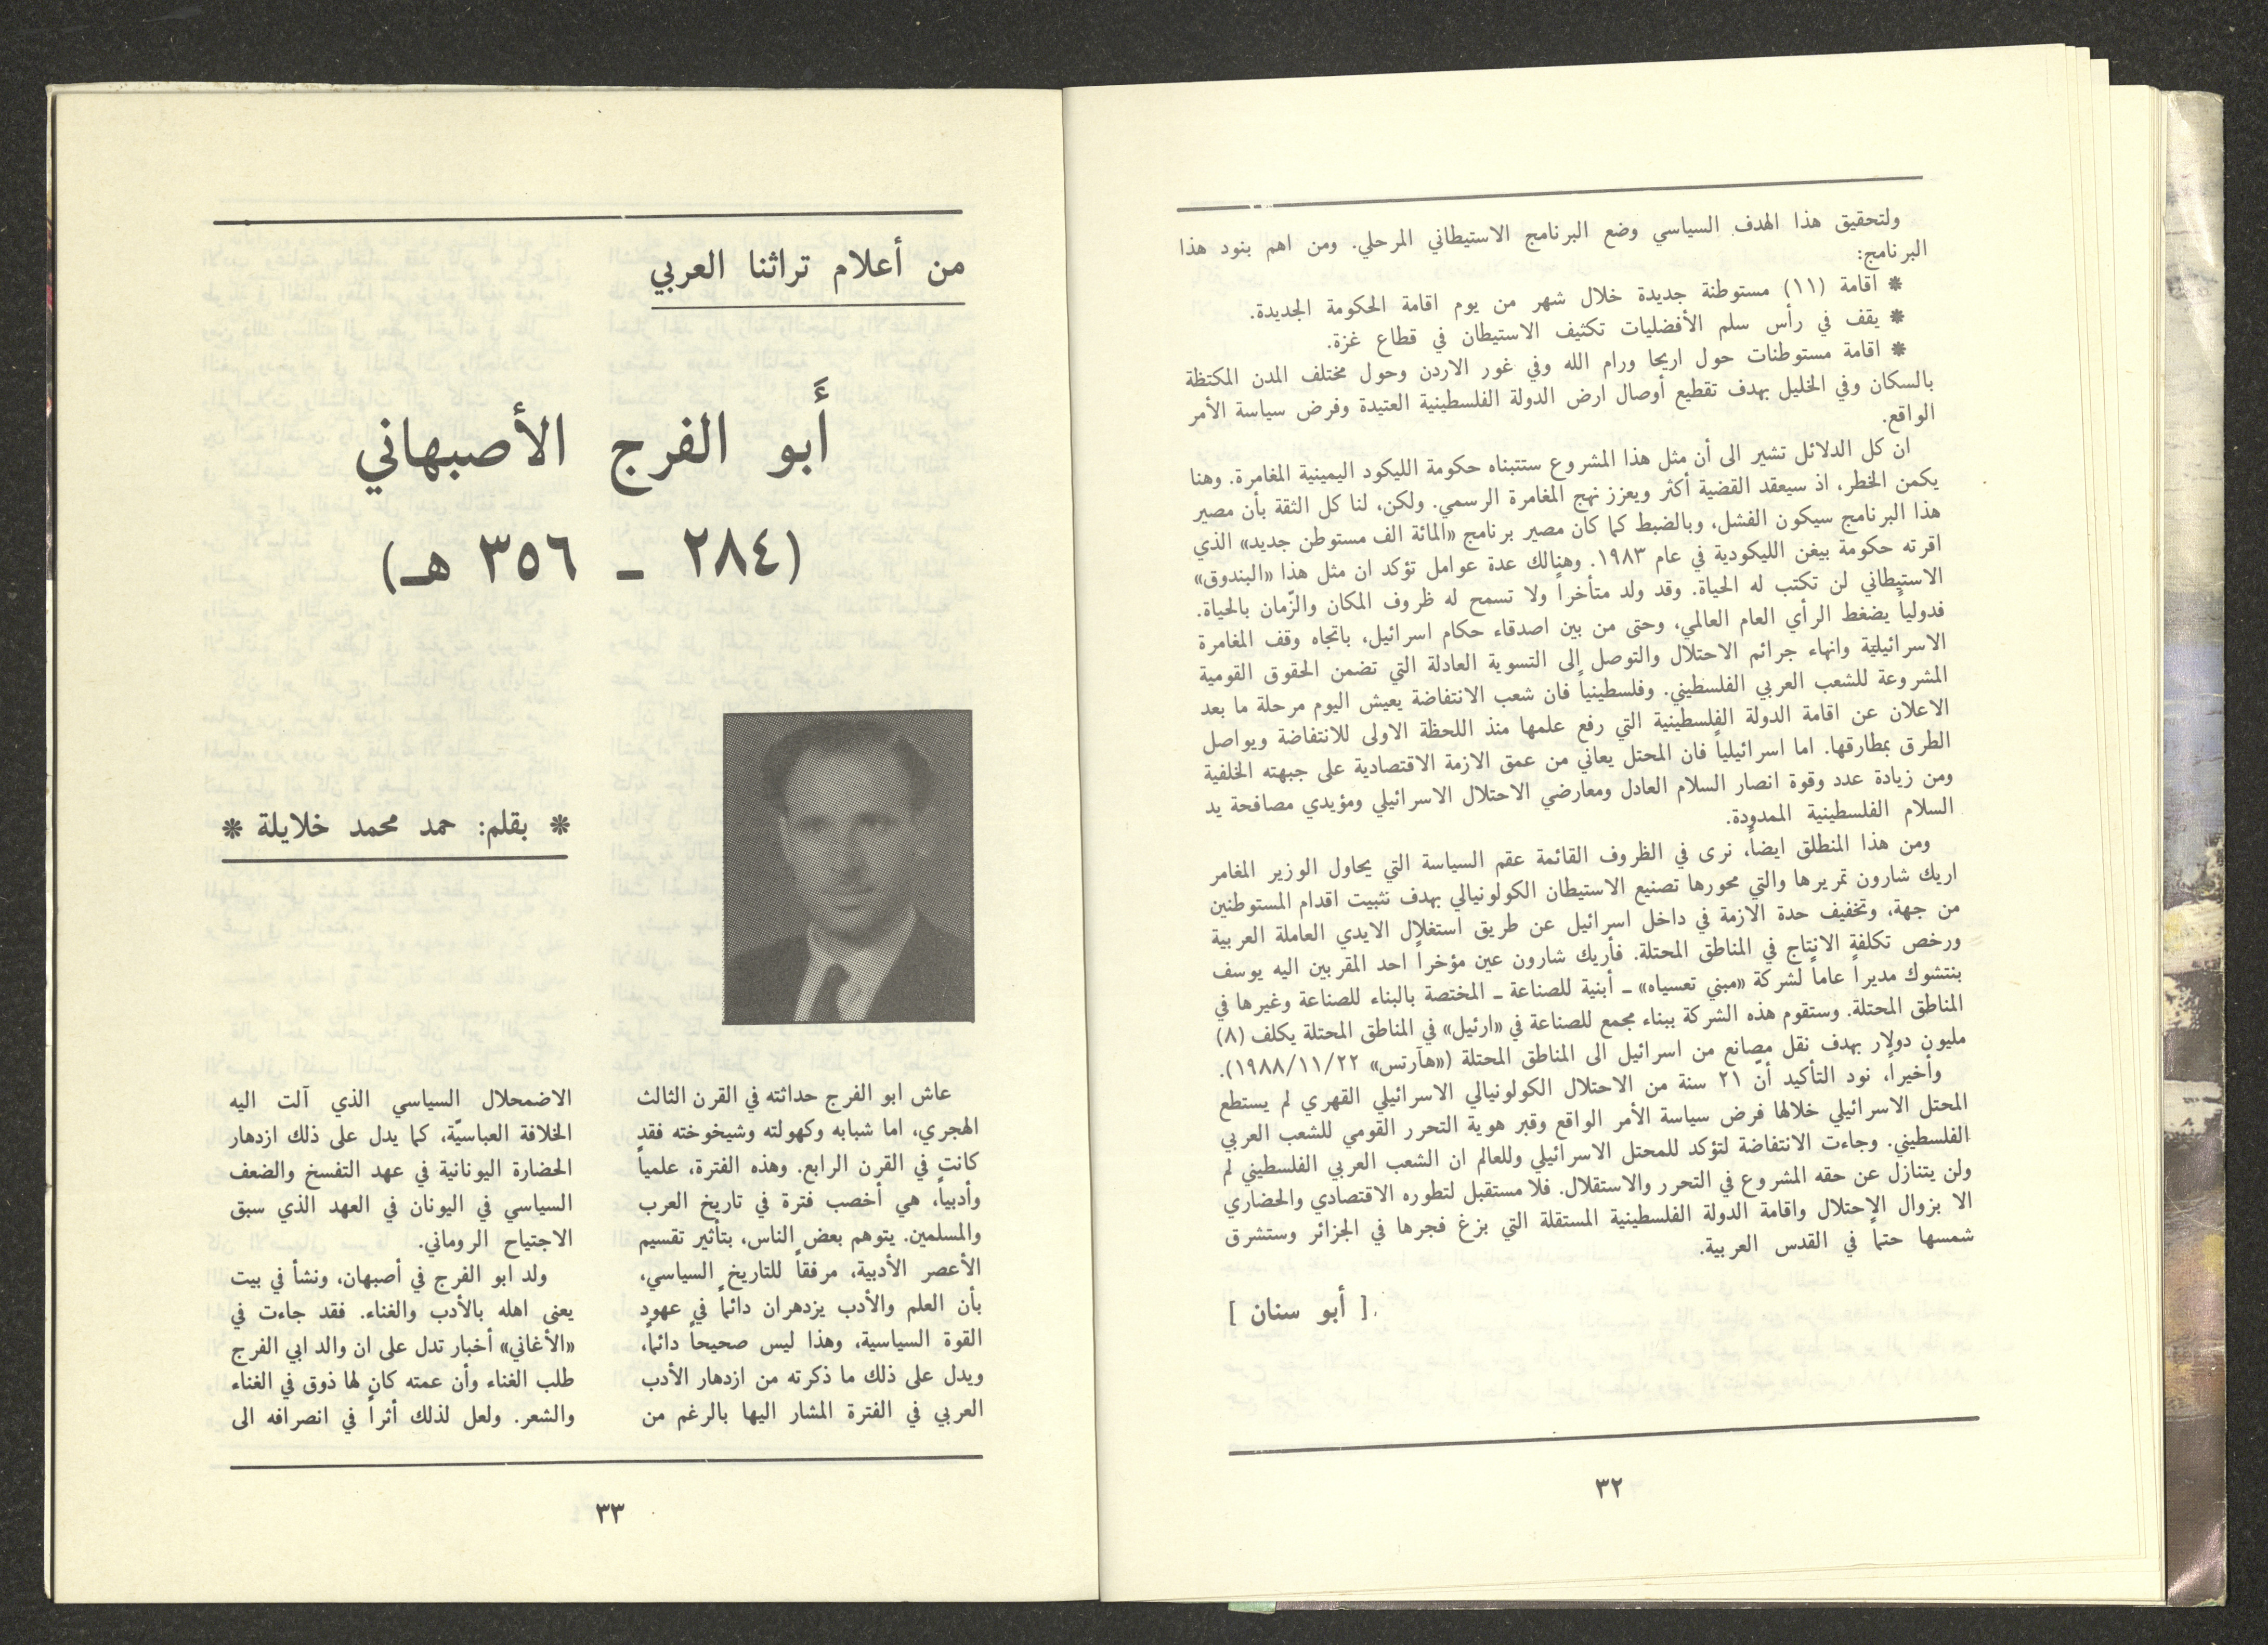 ولتحقيق هذا الهدف السياسي وضع البرنامج الاستيطاني المرحلي. ومن اهم بنود هذا
البرنامج:
* اقامة (١١) مستوطنة جديدة خلال شهر من يوم اقامة الحكومة الجديدة.
* يقف في رأس سلم الأفضليات تكثيف الاستيطان في قطاع غزة.
* اقامة مستوطنات حول اريحا ورام الله وفي غور الاردن وحول مختلف المدن المكتظة
بالسكان وفي الخليل بهدف تقطيع أوصال ارض الدولة الفلسطينية العتيدة وفرض سياسة الأمر
الواقع.
ان كل الدلائل تشير الى أن مثل هذا المشروع ستتبناه حكومة الليكود اليمينية المغامرة. وهنا
يكمن الخطر، اذ سيعقد القضية أكثر ويعزز نهج المغامرة الرسمي. ولكن، لنا كل الثقة بأن مصير
هذا البرنامج سيكون الفشل، وبالضبط كما كان مصير برنامج «المائة الف مستوطن جديد» الذي
اقرته حكومة بيغن الليكودية في عام ١٩٨٣. وهنالك عدة عوامل تؤكد ان مثل هذا «البندوق»
الاستيطاني لن تكتب له الحياة. وقد ولد متأخراً ولا تسمح له ظروف المكان والزّمان بالحياة.
فدولياً يضغط الرأي العام العالمي، وحتى من بين اصدقاء حكام اسرائيل، باتجاه وقف المغامرة
الاسرائيلية وانهاء جرائم الاحتلال والتوصل إلى التسوية العادلة التي تضمن الحقوق القومية
المشروعة للشعب العربي الفلسطيني. وفلسطينياً فان شعب الانتفاضة يعيش اليوم مرحلة ما بعد
الاعلان عن اقامة الدولة الفلسطينية التي رفع علمها منذ اللحظة الاولى للانتفاضة ويواصل
الطرق بمطارقها. اما اسرائيلياً فان المحتل يعاني من عمق الازمة الاقتصادية على جبهته الخلفية
ومن زيادة عدد وقوة انصار السلام العادل ومعارضي الاحتلال الاسرائيلي ومؤيدي مصافحة يد
السلام الفلسطينية الممدودة.
ومن هذا المنطلق ايضاً، نرى في الظروف القائمة عقم السياسة التي يحاول الوزير المغامر
اريك شارون تمريرها والتي محورها تصنيع الاستيطان الكولونيالي بهدف تثبيت اقدام المستوطنين
من جهة، وتخفيف حدة الازمة في داخل اسرائيل عن طريق استغلال الايدي العاملة العربية
ورخص تكلفة الانتاج في المناطق المحتلة. فأريك شارون عين مؤخراً احد المقربين اليه يوسف
بنتشوك مديراً عاماً لشركة «مبني تعسياه» ـ أبنية للصناعة ـ المختصة بالبناء للصناعة وغيرها في
المناطق المحتلة. وستقوم هذه الشركة ببناء مجمع للصناعة في «ارئيل» في المناطق المحتلة يكلف (٨)
مليون دولار بهدف نقل مصانع من اسرائيل الى المناطق المحتلة («هآرتس» ١٩٨٨/١١/٢٢).
وأخيراً، نود التأكيد أن ٢١ سنة من الاحتلال الكولونيالي الاسرائيلي القهري لم يستطع
المحتل الاسرائيلي خلالها فرض سياسة الأمر الواقع وقبر هوية التحرر القومي للشعب العربي
الفلسطيني. وجاءت الانتفاضة لتؤكد للمحتل الاسرائيلي وللعالم ان الشعب العربي الفلسطيني لم
ولن يتنازل عن حقه المشروع في التحرر والاستقلال. فلا مستقبل لتطوره الاقتصادي والحضاري
الا بزوال الاحتلال واقامة الدولة الفلسطينية المستقلة التي بزغ فجرها في الجزائر وستشرق
شمسها حتماً في القدس العربية.
[ أبو سنان ]
٣٢
من أعلام تراثنا العربي
أَبو الفرج الأصبهاني
(٢٨٤ ـ ٣٥٦ هـ)
* بقلم: حمد محمد خلايلة *
عاش ابو الفرج حداثته في القرن الثالث
الهجري، اما شبابه وكهولته وشيخوخته فقد
كانت في القرن الرابع. وهذه الفترة، علمياً
وأدبياً، هي أخصب فترة في تاريخ العرب
والمسلمين. يتوهم بعض الناس، بتأثير تقسيم
الأعصر الأدبية، مرفقاً للتاريخ السياسي،
بأن العلم والأدب يزدهران دائماً في عهود
القوة السياسية، وهذا ليس صحيحاً دائماً،
ويدل على ذلك ما ذكرته من ازدهار الأدب
العربي في الفترة المشار اليها بالرغم من
الاضمحلال السياسي الذي آلت اليه
الخلافة العباسيّة، كما يدل على ذلك ازدهار
الحضارة اليونانية في عهد التفسخ والضعف
السياسي في اليونان في العهد الذي سبق
الاجتياح الروماني.
ولد ابو الفرج في أصبهان، ونشأ في بيت
يعنى اهله بالأدب والغناء. فقد جاءت في
«الأغاني» أخبار تدل على ان والد ابي الفرج
طلب الغناء وأن عمته كان لها ذوق في الغناء
والشعر. ولعل لذلك أثراً في انصرافه الى
٣٣